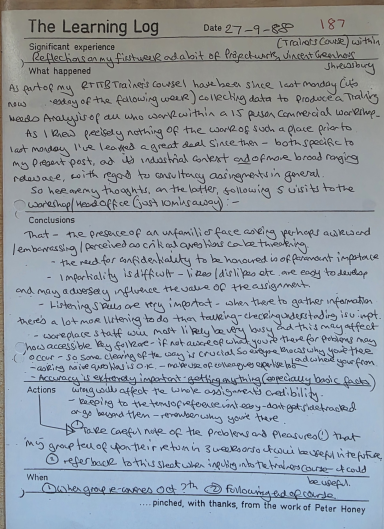 The Learning Log
Date 27-9-88
187
(Trainers Course) within
Significant experience
Reflections on my first week and a bit of Project work, Vincent Greenhous
Shrewsbury
What happened
As part of my RTITB Trainers Course I have been since last Monday (it's
now esday of the following week) collecting data to produce a Training
Needs Analysis of all who work within a 15 person commercial workshop.
As I knew precisely nothing of the work of such a place prior
to last Monday I've learned a great deal since then - both specific to
my present post, and its industrial context and of more broad ranging
relevance, with regard to consultancy assignments in general.
So here are my thoughts, on the latter, following 5 visits to the
workshop/Head Office (just 10 mins away) :-
Conclusions
That - the presence of an unfamiliar face asking perhaps awkward
/embarrassing/perceived as critical questions can be threatening.
- the need for confidentiality to be honoured is of paramount importance
- Impartiality is difficult - likes/dislikes etc. are easy to develop
and may adversely influence the value of the assignment.
- Listening skills are very important - when there to gather information
there's a lot more listening to do than talking - checking understanding is v impt.
- workplace staff will most likely be very busy and this may affect
how accessible key folk are - if not aware of what you're there for problems may
occur - so some clearing of the way is crucial so everyone knows why you're there
and where you're from
- asking naive questions is O.K. - make use of colleagues expertise
- Accuracy is extremely important - getting anything (especially basic facts)
wrong will affect the whole assignments credibility.
Actions
- keeping to the terms of reference isn't easy - don't get sidetracked
or go beyond them - remember why you're there.
① Take careful note of the problems and pleasures(!) that
my group tell of upon their return in 3 weeks or so it could be useful in the future.
② refer back to this sheet when inputting into the trainers course - it could
be useful.
When
① When group re-convenes Oct 7th ② Following end of course
.... pinched, with thanks, from the work of Peter Honey